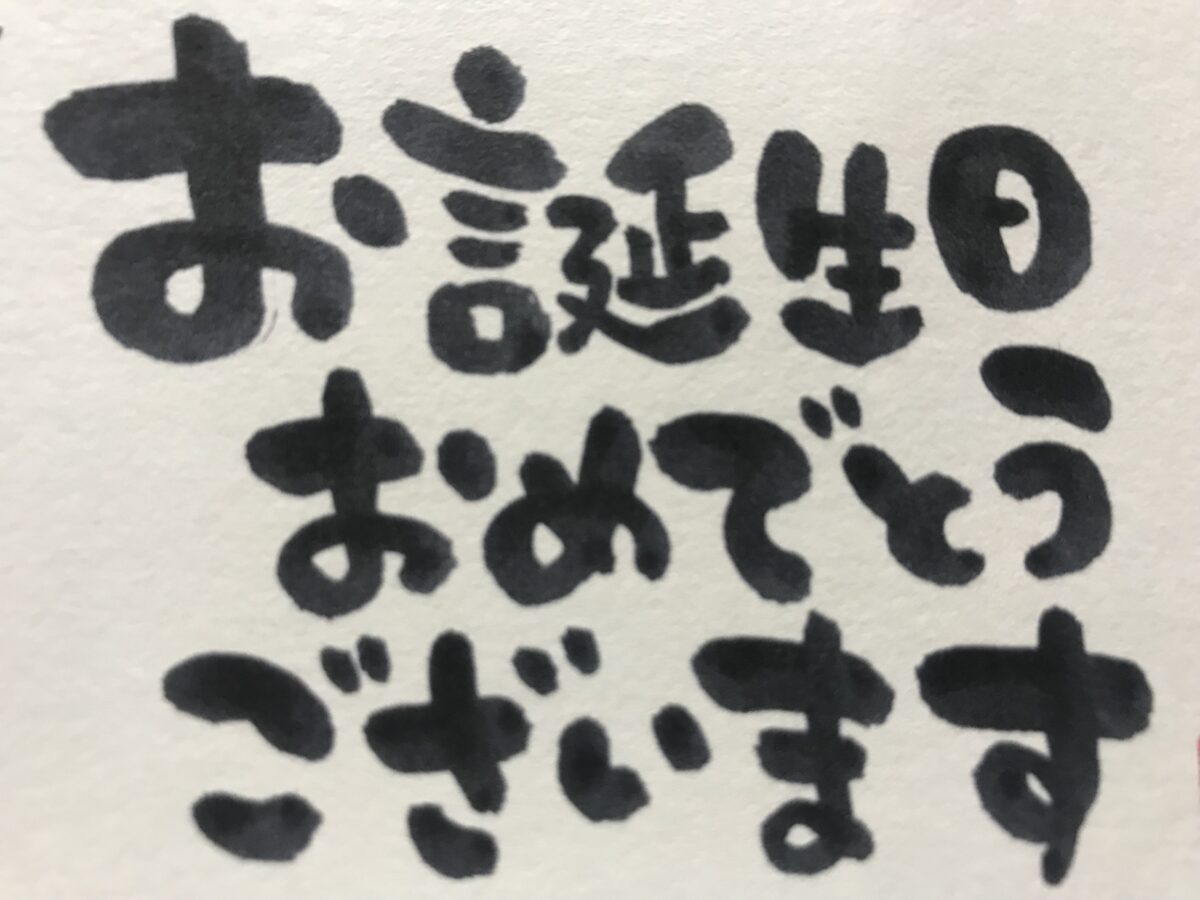 お誕生日
おめでとう
ございます